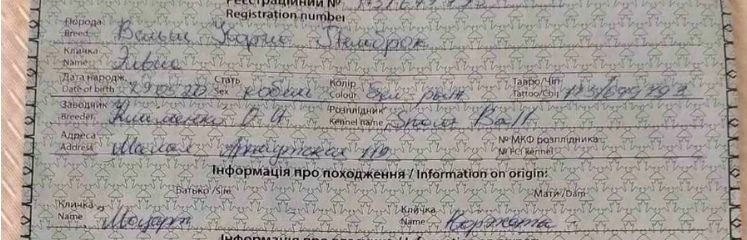 Реєстраційний №
Registration number
Порода
Breed Вельш Корги Пемброк
Кличка
Name Элвис
Дата народж. Стать Колір Тавро/Чіп
Date of birth 29.05.20 Sex кобель Colour бел рыж Tattoo/Chip
Заводчик Розплідник
Breeder Клименко О.А. Kennel name Snow Ball
Адреса № МКФ розплідника
Address Малая Арнаутская № FCI kennel
Інформація про походження / Information on origin:
Батько/Sire Мати/Dam
Кличка Кличка
Name Моцарт Name